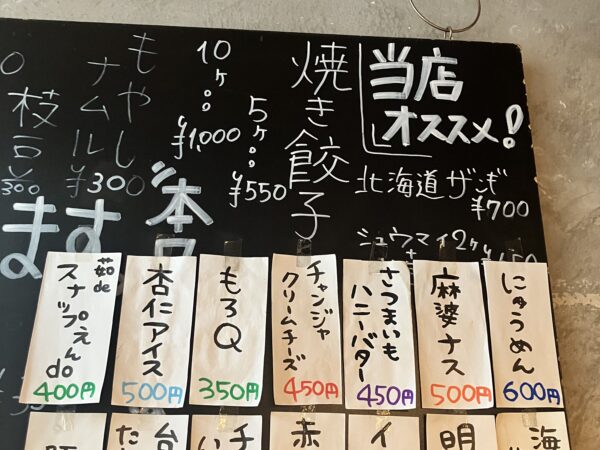 当店
オススメ!
北海道ザンギ
¥700
シュウマイ2ヶ
焼き餃子
5ヶ
¥550
10ヶ
¥1,000
もやし
ナムル
¥300
枝豆
¥300
ます
にゅうめん
600円
麻婆ナス
500円
さつまいも
ハニーバター
450円
チャンジャ
クリームチーズ
450円
もろQ
350円
杏仁アイス
500円
茹de
スナップえんdo
400円
海
明
イ
赤
チ
い
台
た